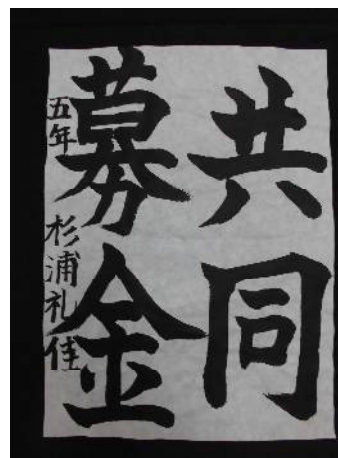 共同
募金
五年 杉浦礼佳